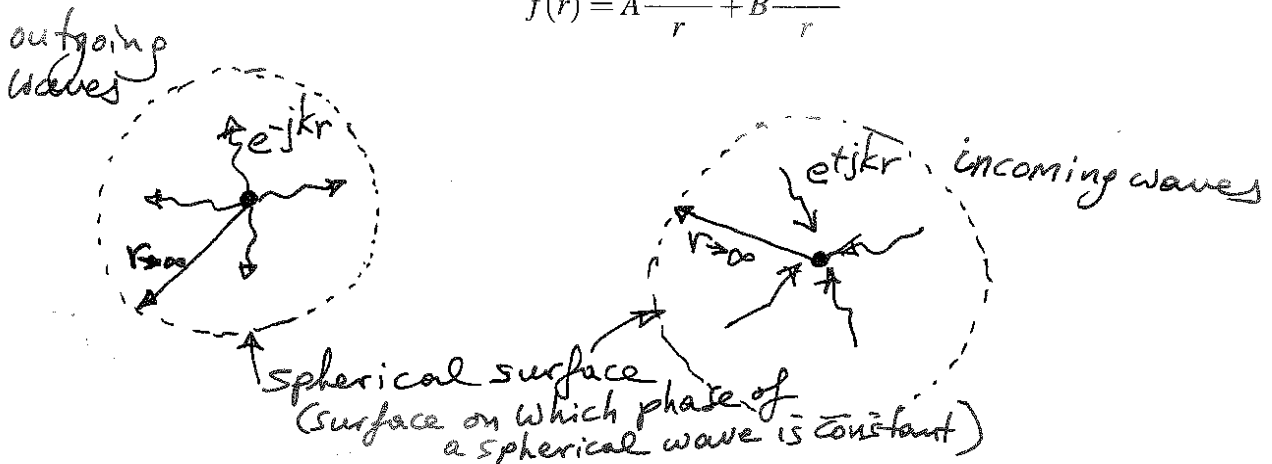 f(r) = A— r + B— r
outgoing
waves
e-jkr
r→∞
e+jkr
incoming waves
r→∞
spherical surface
(surface on which phase of
a spherical wave is constant)